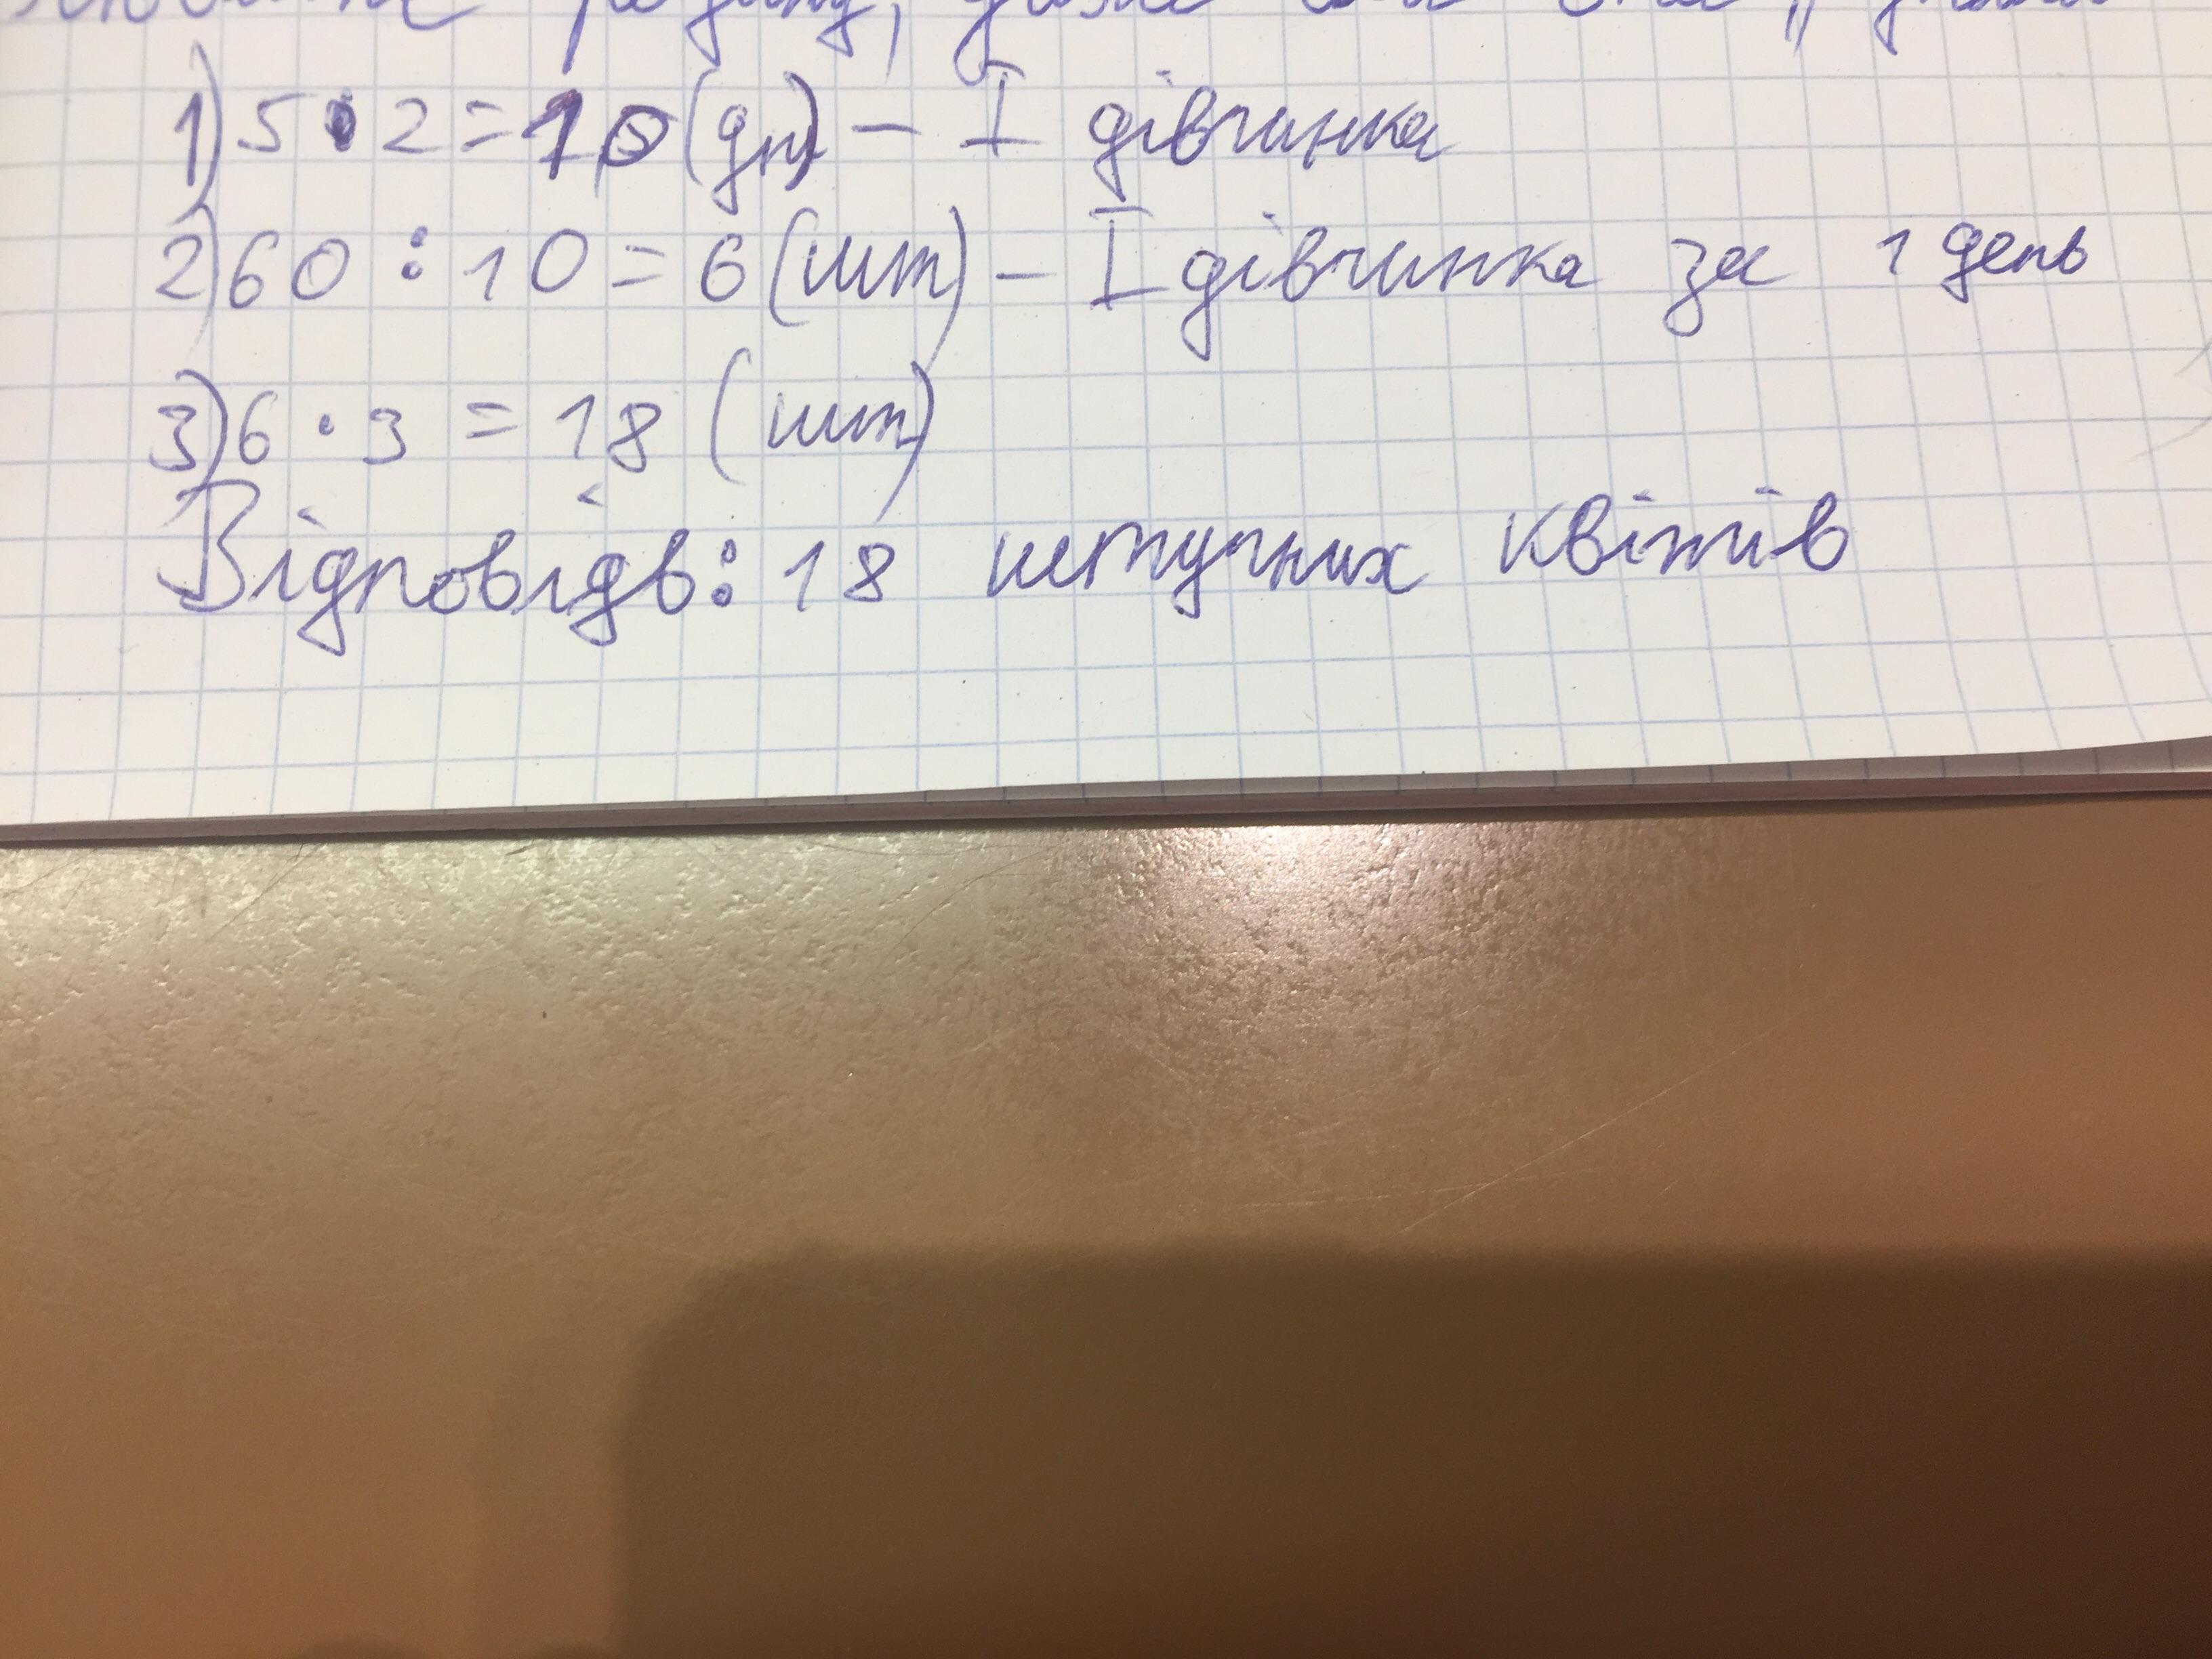 1) 5 • 2 = 10 (дн) – I дівчинка
2) 60 : 10 = 6 (шт) – I дівчинка за 1 день
3) 6 • 3 = 18 (шт)
Відповідь: 18 штучних квітів